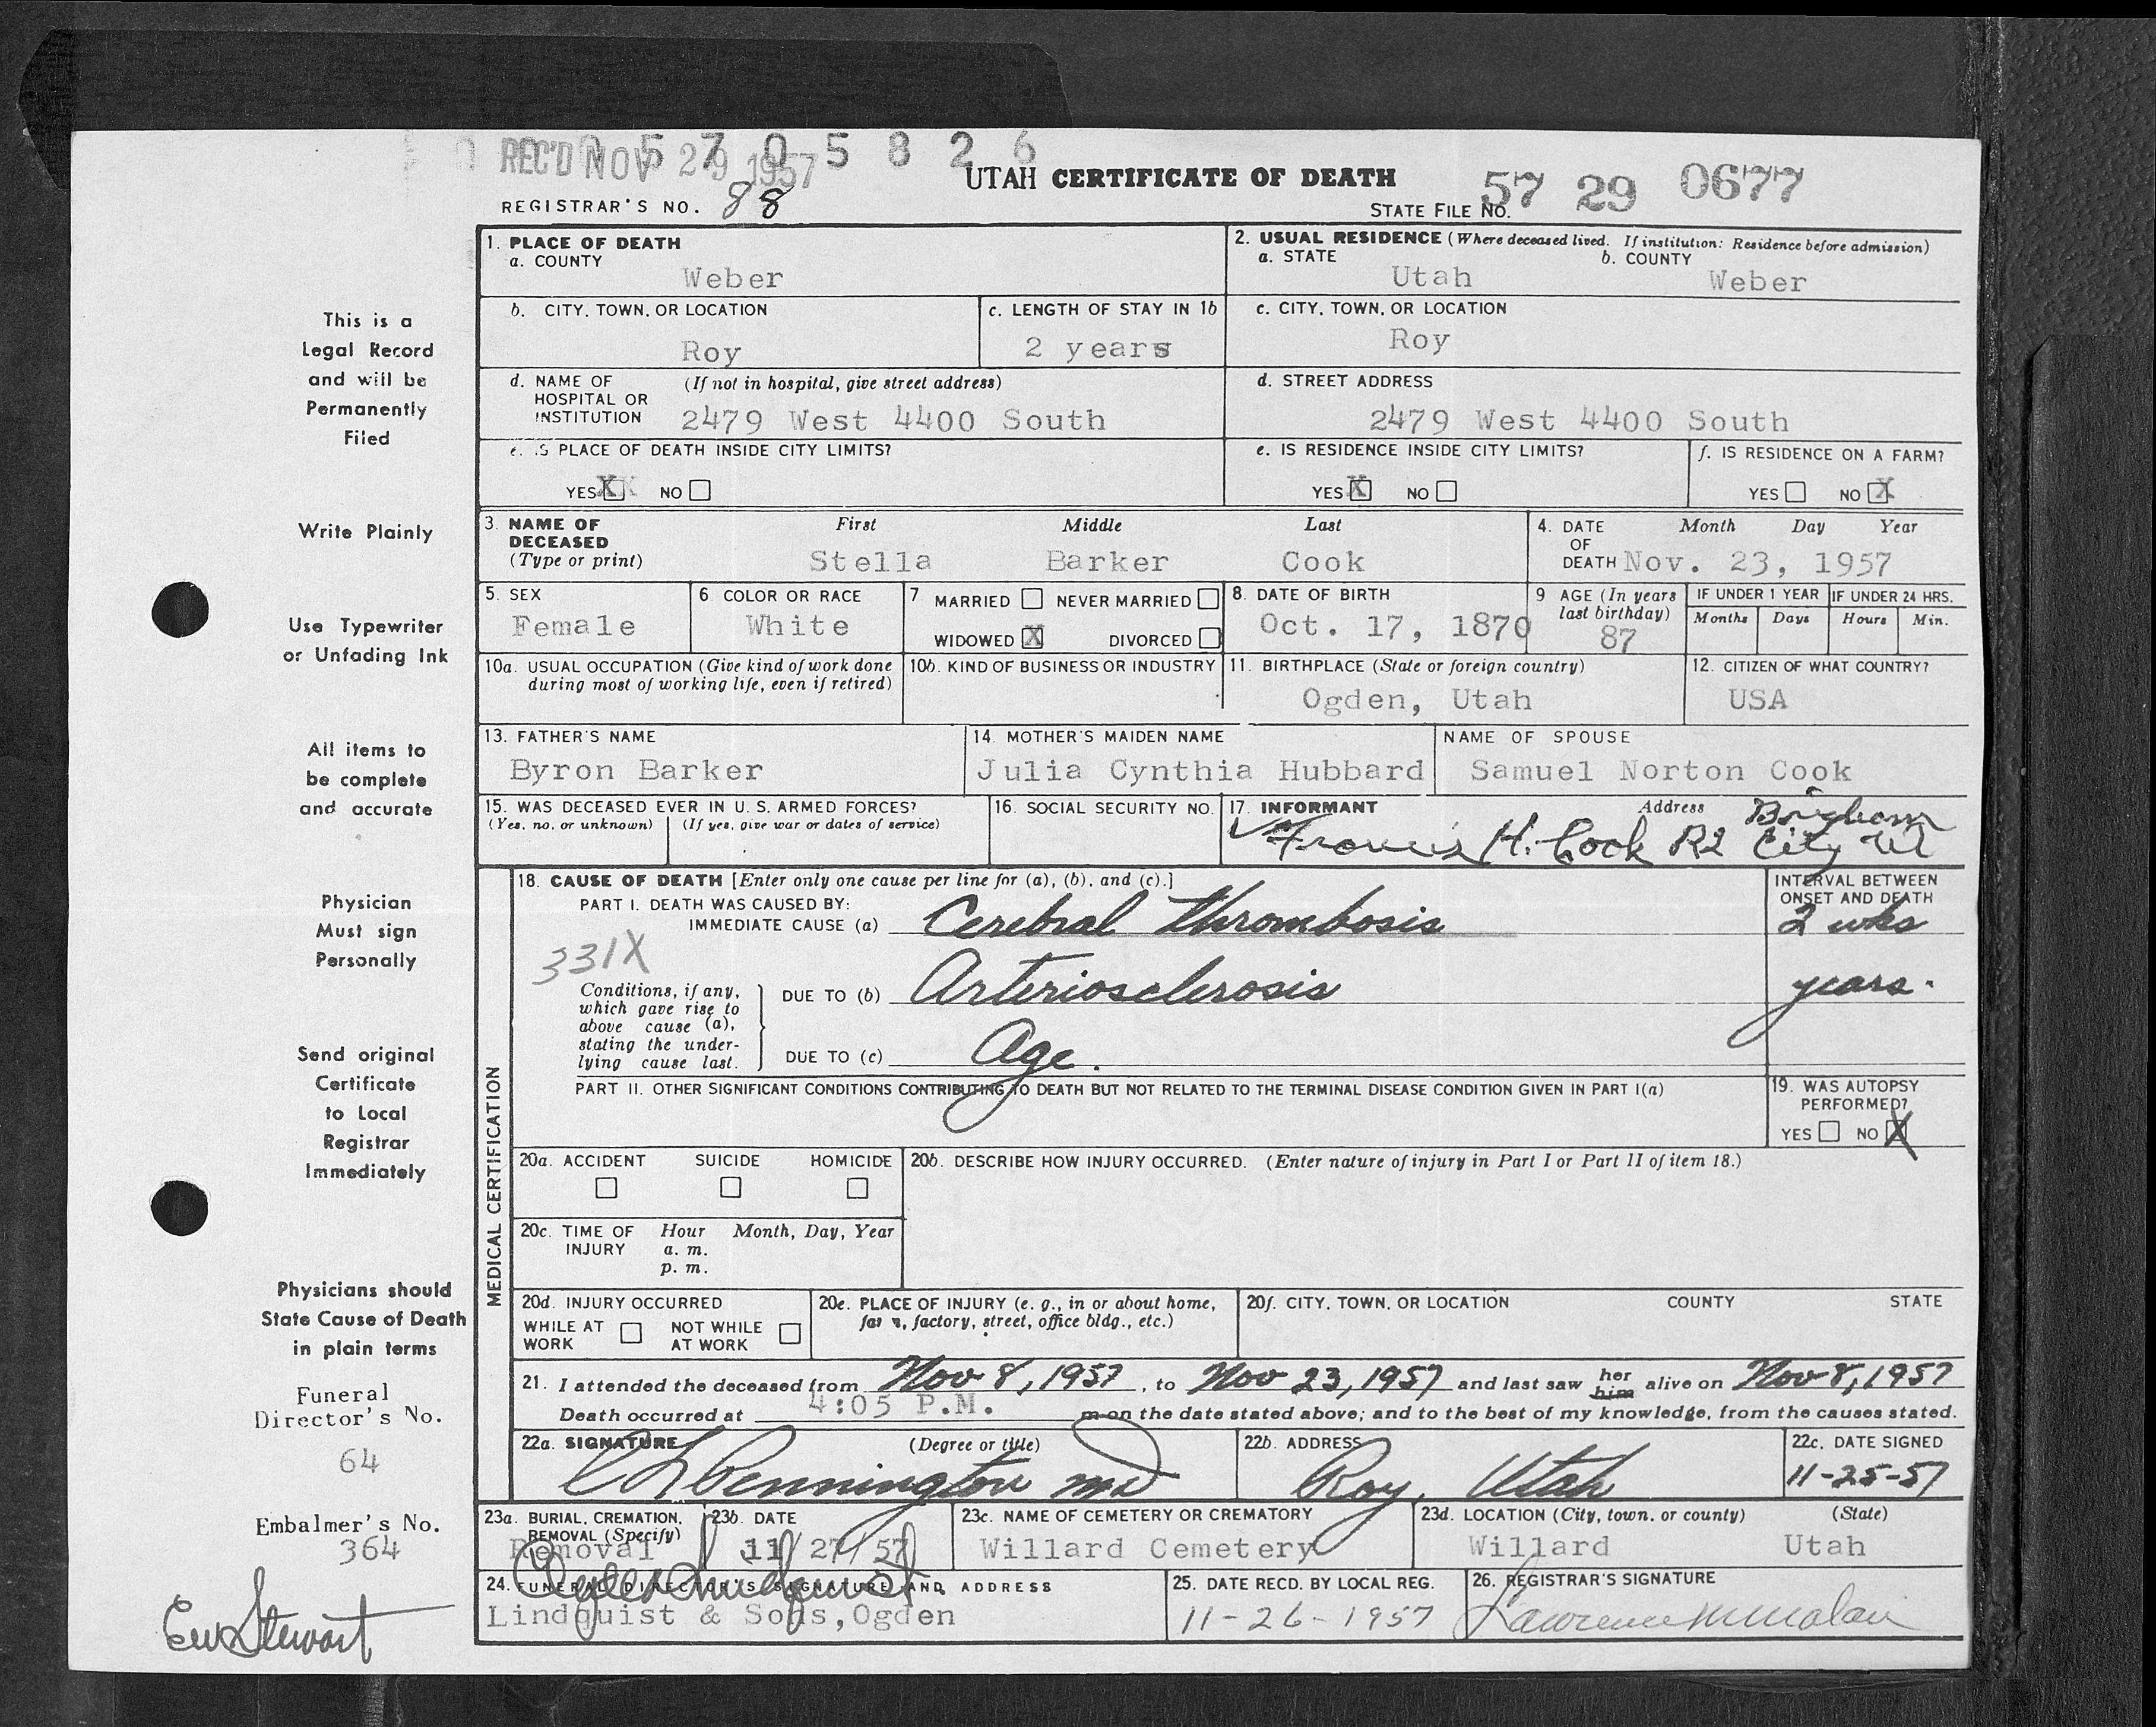 REC'D NOV 29 1957
5 7 0 5 8 2 6
UTAH CERTIFICATE OF DEATH
REGISTRAR'S NO. 88
STATE FILE NO. 57 29 0677
This is a
Legal Record
and will be
Permanently
Filed
Write Plainly
Use Typewriter
or Unfading Ink
All items to
be complete
and accurate
Physician
Must sign
Personally
Send original
Certificate
to Local
Registrar
Immediately
Physicians should
State Cause of Death
in plain terms
Funeral
Director's No.
64
Embalmer's No.
364
Stewart
1. PLACE OF DEATH
a. COUNTY
Weber
2. USUAL RESIDENCE (Where deceased lived. If institution: Residence before admission)
a. STATE
Utah
b. COUNTY
Weber
b. CITY, TOWN, OR LOCATION
Roy
c. LENGTH OF STAY IN 1b
2 years
c. CITY, TOWN, OR LOCATION
Roy
d. NAME OF HOSPITAL OR INSTITUTION (If not in hospital, give street address)
2479 West 4400 South
d. STREET ADDRESS
2479 West 4400 South
e. IS PLACE OF DEATH INSIDE CITY LIMITS?
YES X NO
e. IS RESIDENCE INSIDE CITY LIMITS?
YES X NO
f. IS RESIDENCE ON A FARM?
YES NO X
3. NAME OF DECEASED (Type or print)
First Middle Last
Stella Barker Cook
4. DATE OF DEATH
Month Day Year
Nov. 23, 1957
5. SEX
Female
6. COLOR OR RACE
White
7. MARRIED NEVER MARRIED
WIDOWED X DIVORCED
8. DATE OF BIRTH
Oct. 17, 1870
9 AGE (In years last birthday)
87
IF UNDER 1 YEAR
Months Days
IF UNDER 24 HRS.
Hours Min.
10a. USUAL OCCUPATION (Give kind of work done
during most of working life, even if retired)
10b. KIND OF BUSINESS OR INDUSTRY
11. BIRTHPLACE (State or foreign country)
Ogden, Utah
12. CITIZEN OF WHAT COUNTRY?
USA
13. FATHER'S NAME
Byron Barker
14. MOTHER'S MAIDEN NAME
Julia Cynthia Hubbard
NAME OF SPOUSE
Samuel Norton Cook
15. WAS DECEASED EVER IN U. S. ARMED FORCES?
(Yes, no, or unknown) (If yes, give war or dates of service)
16. SOCIAL SECURITY NO.
17. INFORMANT Address
Francis H. Cook R2 Brigham City Ut
MEDICAL CERTIFICATION
18. CAUSE OF DEATH [Enter only one cause per line for (a), (b), and (c).]
PART I. DEATH WAS CAUSED BY:
IMMEDIATE CAUSE (a) Cerebral thrombosis
INTERVAL BETWEEN ONSET AND DEATH
2 wks
331X
Conditions, if any,
which gave rise to
above cause (a),
stating the under-
lying cause last.
DUE TO (b) Arteriosclerosis
years.
DUE TO (c) Age.
PART II. OTHER SIGNIFICANT CONDITIONS CONTRIBUTING TO DEATH BUT NOT RELATED TO THE TERMINAL DISEASE CONDITION GIVEN IN PART I(a)
19. WAS AUTOPSY PERFORMED?
YES NO X
20a. ACCIDENT SUICIDE HOMICIDE
20b. DESCRIBE HOW INJURY OCCURRED. (Enter nature of injury in Part I or Part II of item 18.)
20c. TIME OF INJURY
Hour Month, Day, Year
a. m.
p. m.
20d. INJURY OCCURRED
WHILE AT WORK NOT WHILE AT WORK
20e. PLACE OF INJURY (e. g., in or about home,
farm, factory, street, office bldg., etc.)
20f. CITY, TOWN, OR LOCATION COUNTY STATE
21. I attended the deceased from Nov 8, 1957, to Nov 23, 1957 and last saw her him alive on Nov 8, 1957
Death occurred at 4:05 P.M. m on the date stated above; and to the best of my knowledge, from the causes stated.
22a. SIGNATURE (Degree or title)
Pennington MD
22b. ADDRESS
Roy, Utah
22c. DATE SIGNED
11-25-57
23a. BURIAL, CREMATION, REMOVAL (Specify)
Removal
23b. DATE
11/27/57
23c. NAME OF CEMETERY OR CREMATORY
Willard Cemetery
23d. LOCATION (City, town, or county) (State)
Willard Utah
24. FUNERAL DIRECTOR'S SIGNATURE AND ADDRESS
Lindquist & Sons, Ogden
25. DATE RECD. BY LOCAL REG.
11-26-1957
26. REGISTRAR'S SIGNATURE
Lawrence M Malan